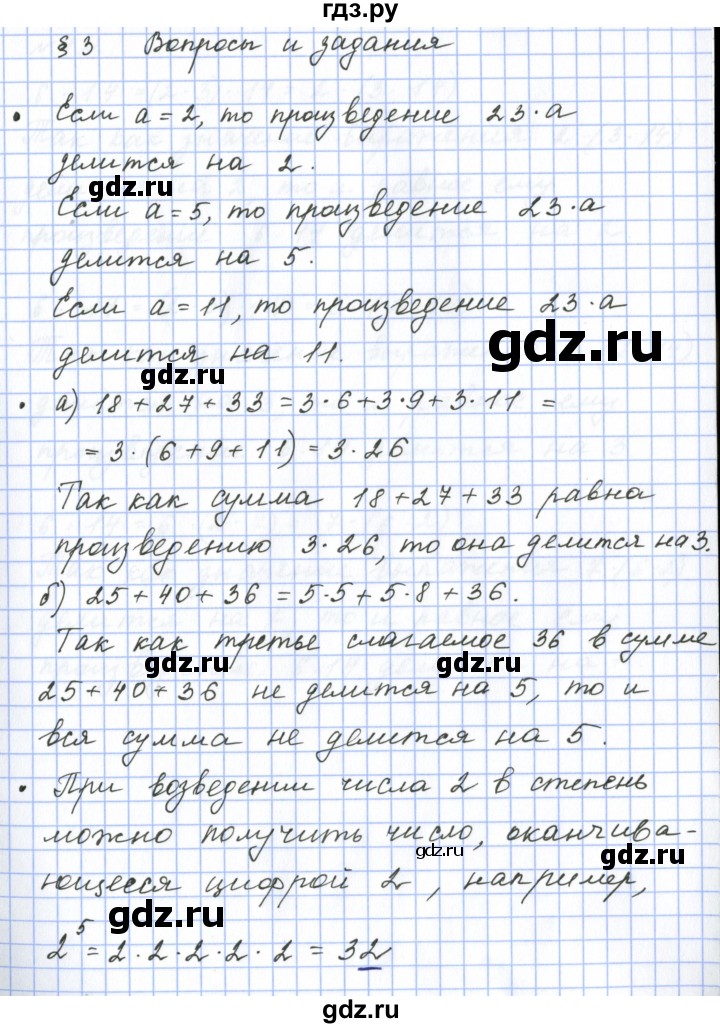 гдз.ру
§ 3 Вопросы и задания
• Если a = 2, то произведение 23·a
делится на 2.
gdz.ru
Если a = 5, то произведение 23·a
делится на 5.
Если a = 11, то произведение 23·a
gdz.ru
делится на 11.
gdz.ru
• а) 18 + 27 + 33 = 3·6 + 3·9 + 3·11 =
= 3·(6 + 9 + 11) = 3·26
Так как сумма 18 + 27 + 33 равна
произведению 3·26, то она делится на 3.
б) 25 + 40 + 36 = 5·5 + 5·8 + 36.
Так как третье слагаемое 36 в сумме
gdz.ru
gdz.ru
25 + 40 + 36 не делится на 5, то и
вся сумма не делится на 5.
• При возведении числа 2 в степень
можно получить число, оканчива-
gdz.ru
gdz.ru
ющееся цифрой 2, например,
gdz.ru
2⁵ = 2·2·2·2·2 = 32
gdz.ru